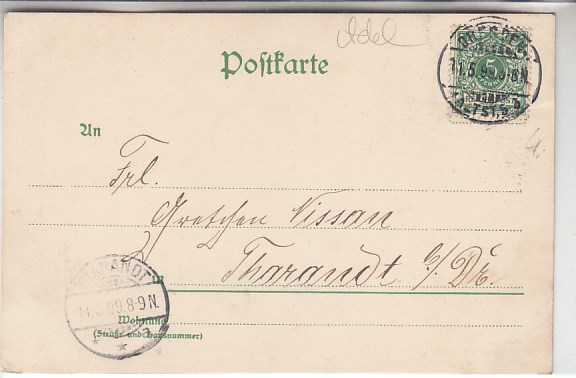 Adel
Postkarte
DRESDEN
11.5.99.8-9N.
ALTST.
5
An
Frl.
Gretchen Nissan
in Tharandt b/Dr.
THARANDT
11.5.99.8-9N.
Wohnung
(Straße und Hausnummer)